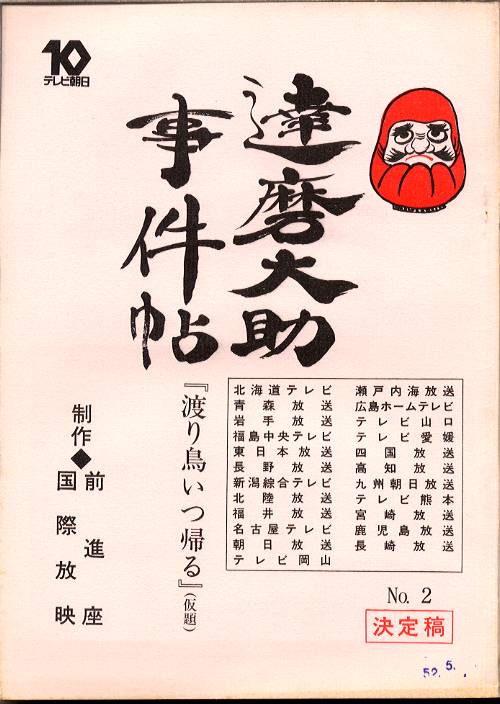 10
テレビ朝日
達磨大助
事件帖
『渡り鳥いつ帰る』(仮題)
制作◆前進座
国際放映
北海道テレビ
青森放送
岩手放送
福島中央テレビ
東日本放送
長野放送
新潟綜合テレビ
北陸放送
福井放送
名古屋テレビ
朝日放送
テレビ岡山
瀬戸内海放送
広島ホームテレビ
テレビ山口
テレビ愛媛
四国放送
高知放送
九州朝日放送
テレビ熊本
宮崎放送
鹿児島放送
長崎放送
No. 2
決定稿
52. 5. .